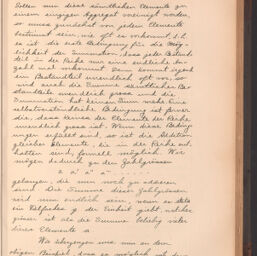 Sollen nun diese sämtlichen Elemente zu
einem einzigen Aggregat vereinigt werden,
so muss zunächst von jedem Elemente
bestimmt sein, wie oft es vorkommt d. h.
es ist die erste Bedingung für die Mög-
lichkeit der Summation, dass jeder Bestand-
teil in der Reihe nur eine endliche An-
zahl mal vorkommt. Denn kommt irgend
ein Bestandteil unendlich oft vor, so
wird auch die Summe sämtlicher Be-
standteile unendlich gross und die
Summation hat keinen Sinn mehr. Eine
selbstverständliche Bedingung ist ferner
die, dass keines der Elemente der Reihe
unendlich gross ist. Wenn diese Bedin-
gungen erfüllt sind, so ist die Addition
gleicher Elemente, die in der Reihe ent-
halten sind, formell möglich. Wir
mögen dadurch zu den Zahlgrössen
a a' a'' a'''
gelangen, die man noch zu addieren
hat. Die Summe dieser Zahlgrössen
wird nun endlich sein, wenn es stets
ein Vielfaches g der Einheit giebt, welches
grösser ist als die Summe beliebig vieler
dieser Elemente a
Wir übergingen nun in dem
obigen Beispiel, dass es möglich